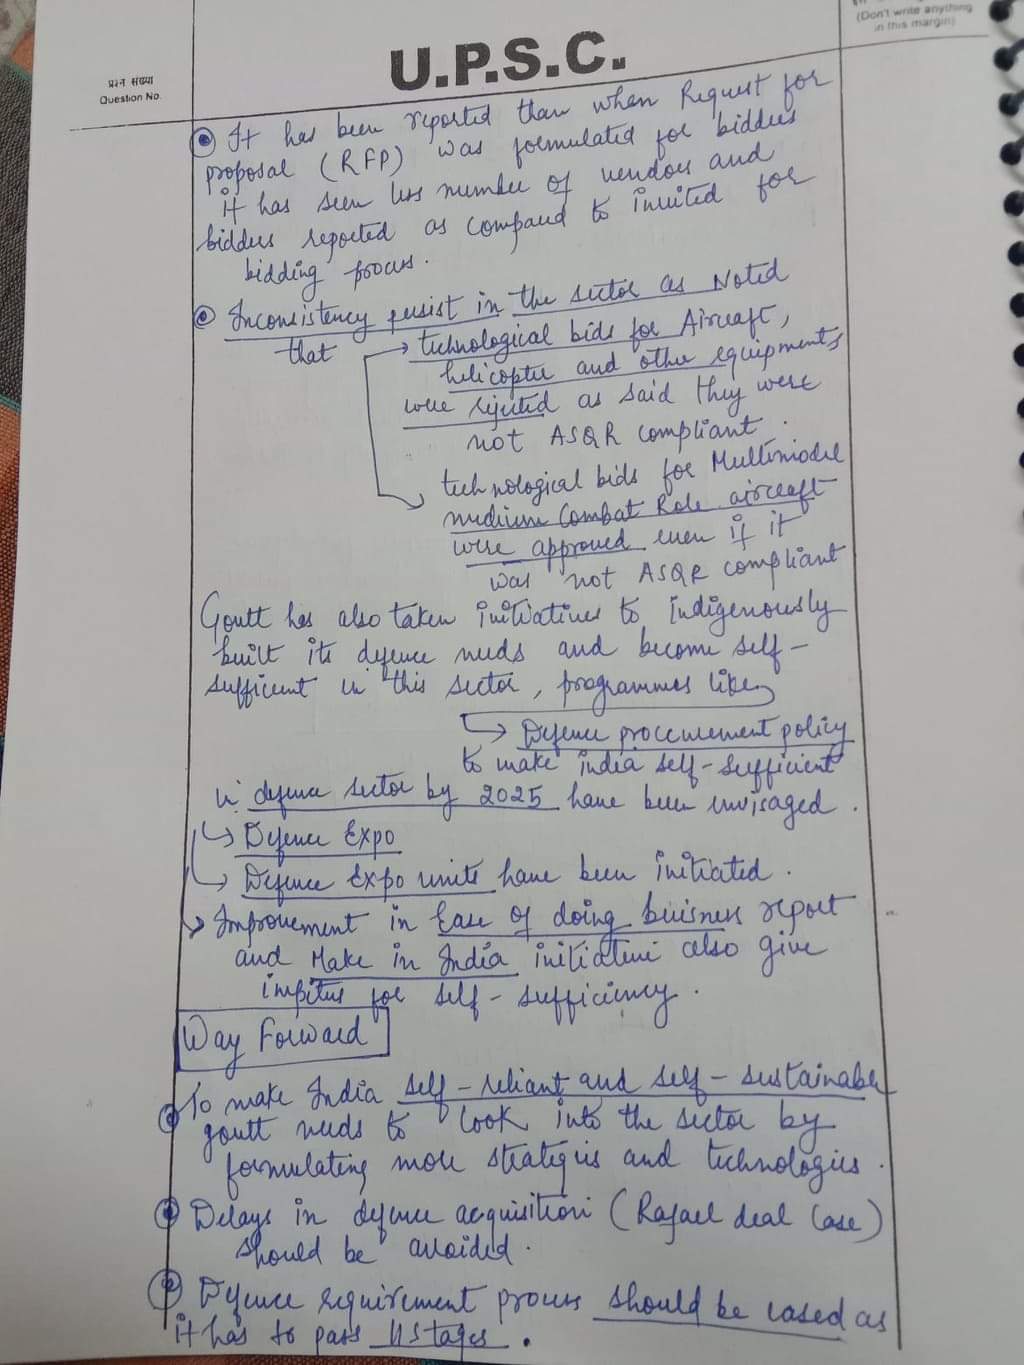 (Don't write anything
in this margin)
U.P.S.C.
प्रश्न संख्या
Question No.
It has been reported than when Request for
proposal (RFP) was formulated for bidders
it has seen less number of vendors and
bidders reported as compared to invited for
bidding process.
Inconsistency persist in the sector as Noted
that → technological bids for Aircraft,
helicopter and other equipments
were rejected as said they were
not ASQR compliant.
technological bids for Multimodel
medium Combat Role aircraft
were approved even if it
was not ASQR compliant
Goutt has also taken initiatives to indigenously
built its defence needs and become self-
sufficient in this sector, programmes like
→ Defence procurement policy
to make india self-sufficient
in defence sector by 2025 have been envisaged.
→ Defence Expo
→ Defence Expo units have been initiated.
→ Improvement in Ease of doing buisness report
and Make in India initiative also give
impetus for self-sufficiency.
Way Forward
To make India self-reliant and self-sustainable
goutt needs to look into the sector by
formulating more strategies and technologies.
Delays in defence acquisition (Rafael deal Case)
should be avoided.
Defence requirement process should be eased as
it has to pass 11 stages.